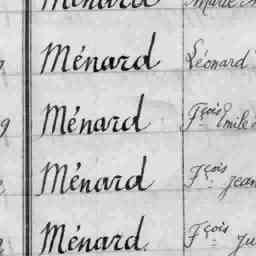 Ménard Marie
Ménard Léonard
9 Ménard Fçois Emile
Ménard Fçois Jean
Ménard Fçois